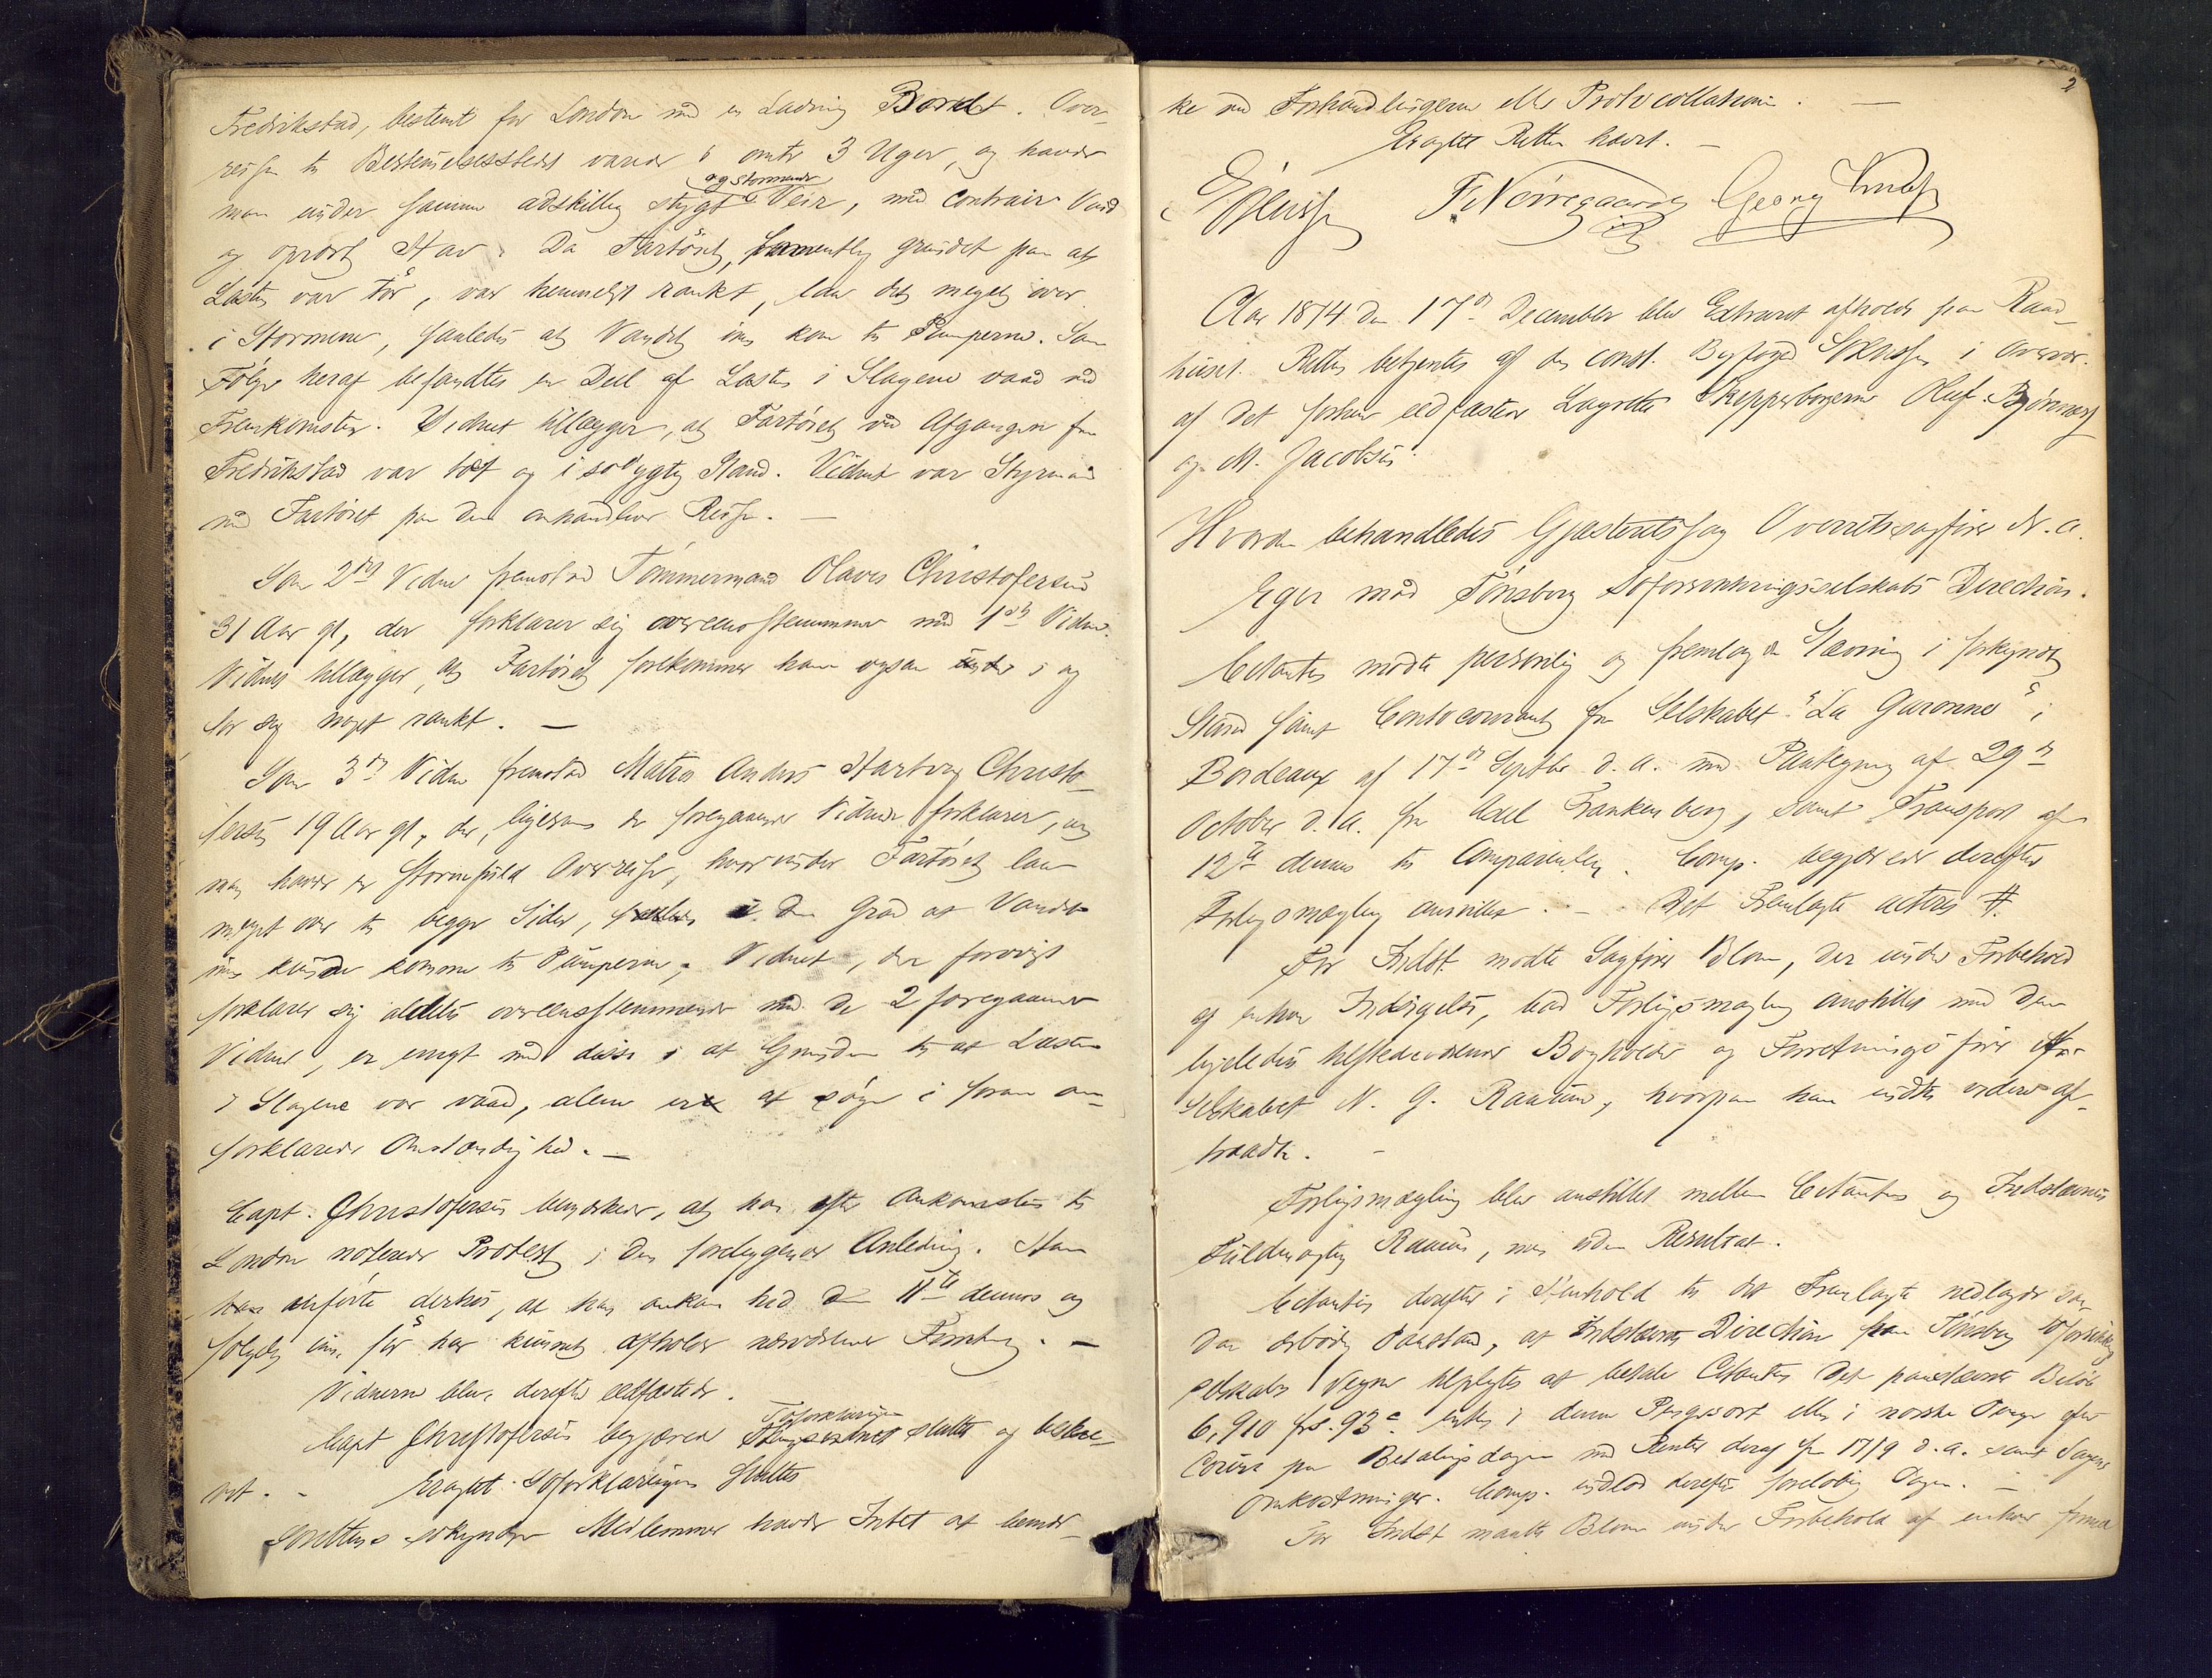 Fredrikstad, bestemt for London med en Ladning Bord. Over-
reisen til Bestemmelsesstedet varede i omtr 3 Uger, og havde
og stormende
man under samme adskillig stygt Veir, med contrair Vind
og oprørt Hav. Da Fartøiet, grundet paa at
Lasten var tør, var rankt, laa det meget over
i Stormene, saaledes at Vandet kom til Pumperne. Som
Følge heraf befandtes en Deel af Lasten i Slagene vaad ved
Fremkomsten. Vidnet tillægger, at Fartøiet ved Afgangen fra
Fredrikstad var tæt og i sødygtig Stand. Vidnet var Styrmand
med Fartøiet paa den omhandlede Reise. —
Som 2det Vidne fremstod Tømmermand Olaves Christofersen
31 Aar gl, der forklarer sig overeensstemmende med 1ste Vidne.
Vidnet tillægger, at Fartøiet forekommer ham ogsaa i og
for sig noget rankt. —
Som 3die Vidne fremstod Matros Anders Christo-
fersen 19 Aar gl, der, ligesom de foregaaende Vidner forklarer, at
man havde en stormfuld Overreise, hvorunder Fartøiet laa
meget over til begge Sider, i den Grad at Vandet
kunde komme til Pumperne. Vidnet, der forøvrigt
forklarer sig aldeles overeensstemmende med de 2 foregaaende
Vidner, er enigt med disse i at Grunden til at Lasten
i Slagene var vaad, alene er at søge i foran om-
forklarede Omstændighed. —
Capt. Christofersen bemærkede, at han efter Ankomsten til
London noterede Protest i den foreliggende Anledning. Han
anførte derhos, at han ankom hid den 11te dennes og
følgelig før har kunnet afholde nærværende Forretning. —
Vidnerne blev derefter eedfæstede.
Søforklaringen
Capt Christofersen begjærede sluttet og beskre-
vet. - Eragtet. Søforklaringen Sluttes
Søretttens søkyndige Medlemmer havde Intet at bemær-
2
ke ved Forhandlingerne eller Protocollationen. —
Eragtet Retten hævet. —
F. Nørregaard Georg
Aar 1874 den 17de December blev Extraret afholdt paa Raad-
huset. Retten betjentes af den const. Byfoged i Overvær
af det forhen eedfæstede Lagrette Skipperborgerne Oluf Bjønnes
og M. Jacobsen.
Hvorda behandledes Gjæsteretssag Overretssagfører N. A.
Eger mod Tønsberg Søforsikringsselskabs Direction.
Citanten mødte personlig og fremlagde Stævning i forkyndt
Stand samt Contocourant fra Selskabet "La Garonne" i
Bordeaux af 17de Septbr d. A. med Paategning af 29de
October d. A. fra Axel Frankenberg, samt Transport af
12te dennes til Comparenten. Comp. begjærede derefter
Forligsmægling anstillet. — Det Fremlagte acteres #.
For Indst. mødte Sagfører Blom, der under Forbehold
af enhver Indsigelse, bad Forligsmægling anstillet med den
ligeledes tilstedeværende Bogholder og Forretningsfører for
Selskabet N. G. Raaum, hvorpaa han indtil videre af-
traadte. —
Forligsmægling blev anstillet mellem Citanten og Indstævntes
Fuldmægtig Raaum, men uden Resultat.
Citanten derefter i Henhold til det Fremlagte nedlagde saa-
dan ærbødig Paastand, at Indstævnte Direction paa Tønsberg Søforsikrings
selskabs Vegne tilpligtes at betale Citanten det paastævnte Beløb
6,910 frs. 93 c. enten i denne Pengesort eller i norske Penge efter
Cours paa Betalingsdagen med Renter deraf fra 17/9 d. A. samt Sagens
Omkostninger. Comp. indlod derefter foreløbig Sagen. —
For Indst mødte Blom under Forbehold af enhver